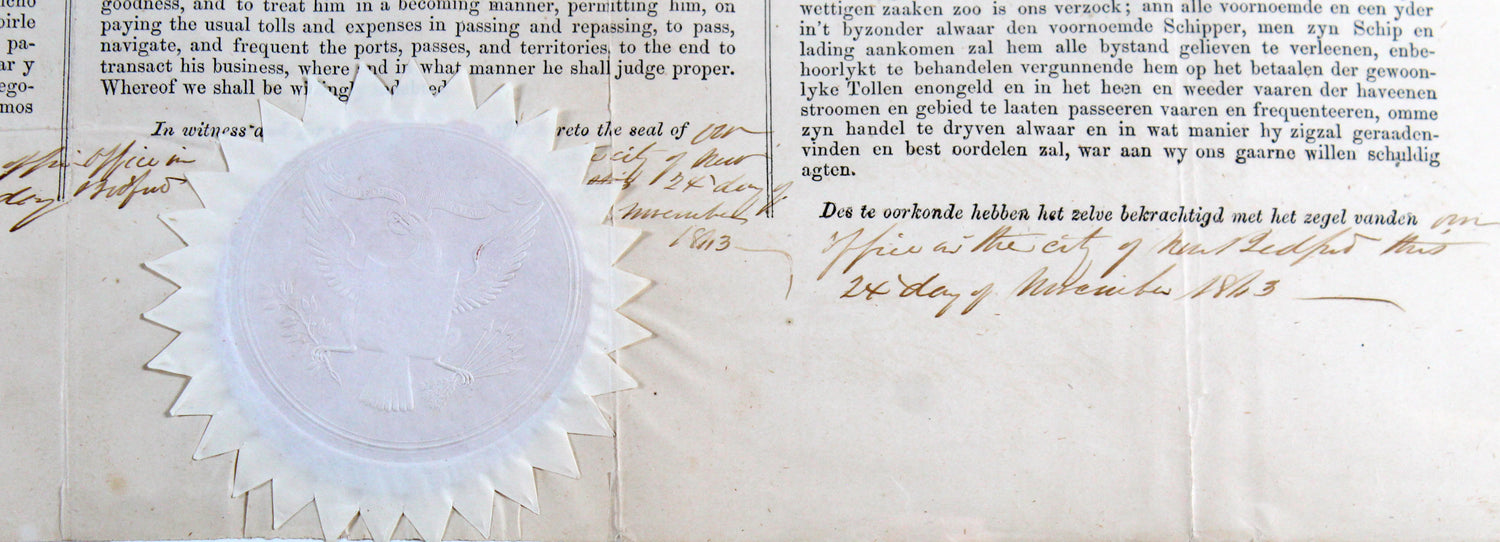 birle
pa-
ar y
ego-
mos
day
goodness, and to treat him in a becoming manner, permitting him, on
paying the usual tolls and expenses in passing and repassing, to pass,
navigate, and frequent the ports, passes, and territories, to the end to
transact his business, where and in what manner he shall judge proper.
Whereof we shall be willingly indebted.
In witness reto the seal of our
office in city of New
Bedford 24 day of
November
1843
wettigen zaaken zoo is ons verzock; ann alle voornoemde en een yder
in't byzonder alwaar den voornoemde Schipper, men zyn Schip en
lading aankomen zal hem alle bystand gelieven te verleenen, enbe-
hoorlykt te behandelen vergunnende hem op het betaalen der gewoon-
lyke Tollen enongeld en in het heen en weeder vaaren der haveenen
stroomen en gebied te laaten passeeren vaaren en frequenteeren, omme
zyn handel te dryven alwaar en in wat manier hy zigzal geraaden-
vinden en best oordelen zal, war aan wy ons gaarne willen schuldig
agten.
Des te oorkonde hebben het zelve bekrachtigd met het zegel vanden our
office in the city of New Bedford this
24 day of November 1843